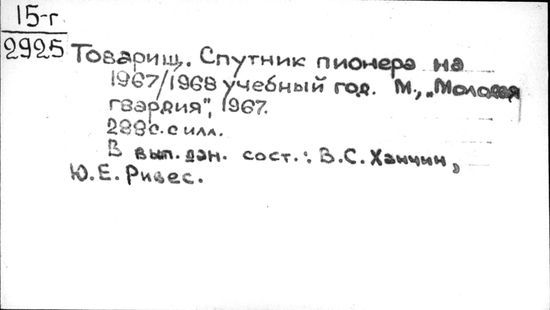 15-г
2925
Товарищ. Спутник пионера на
1967/1968 учебный год. М., „Молодая
гвардия", 1967.
288с. с илл.
В вып. дан. сост.: В.С. Ханчин,
Ю.Е. Ривес.